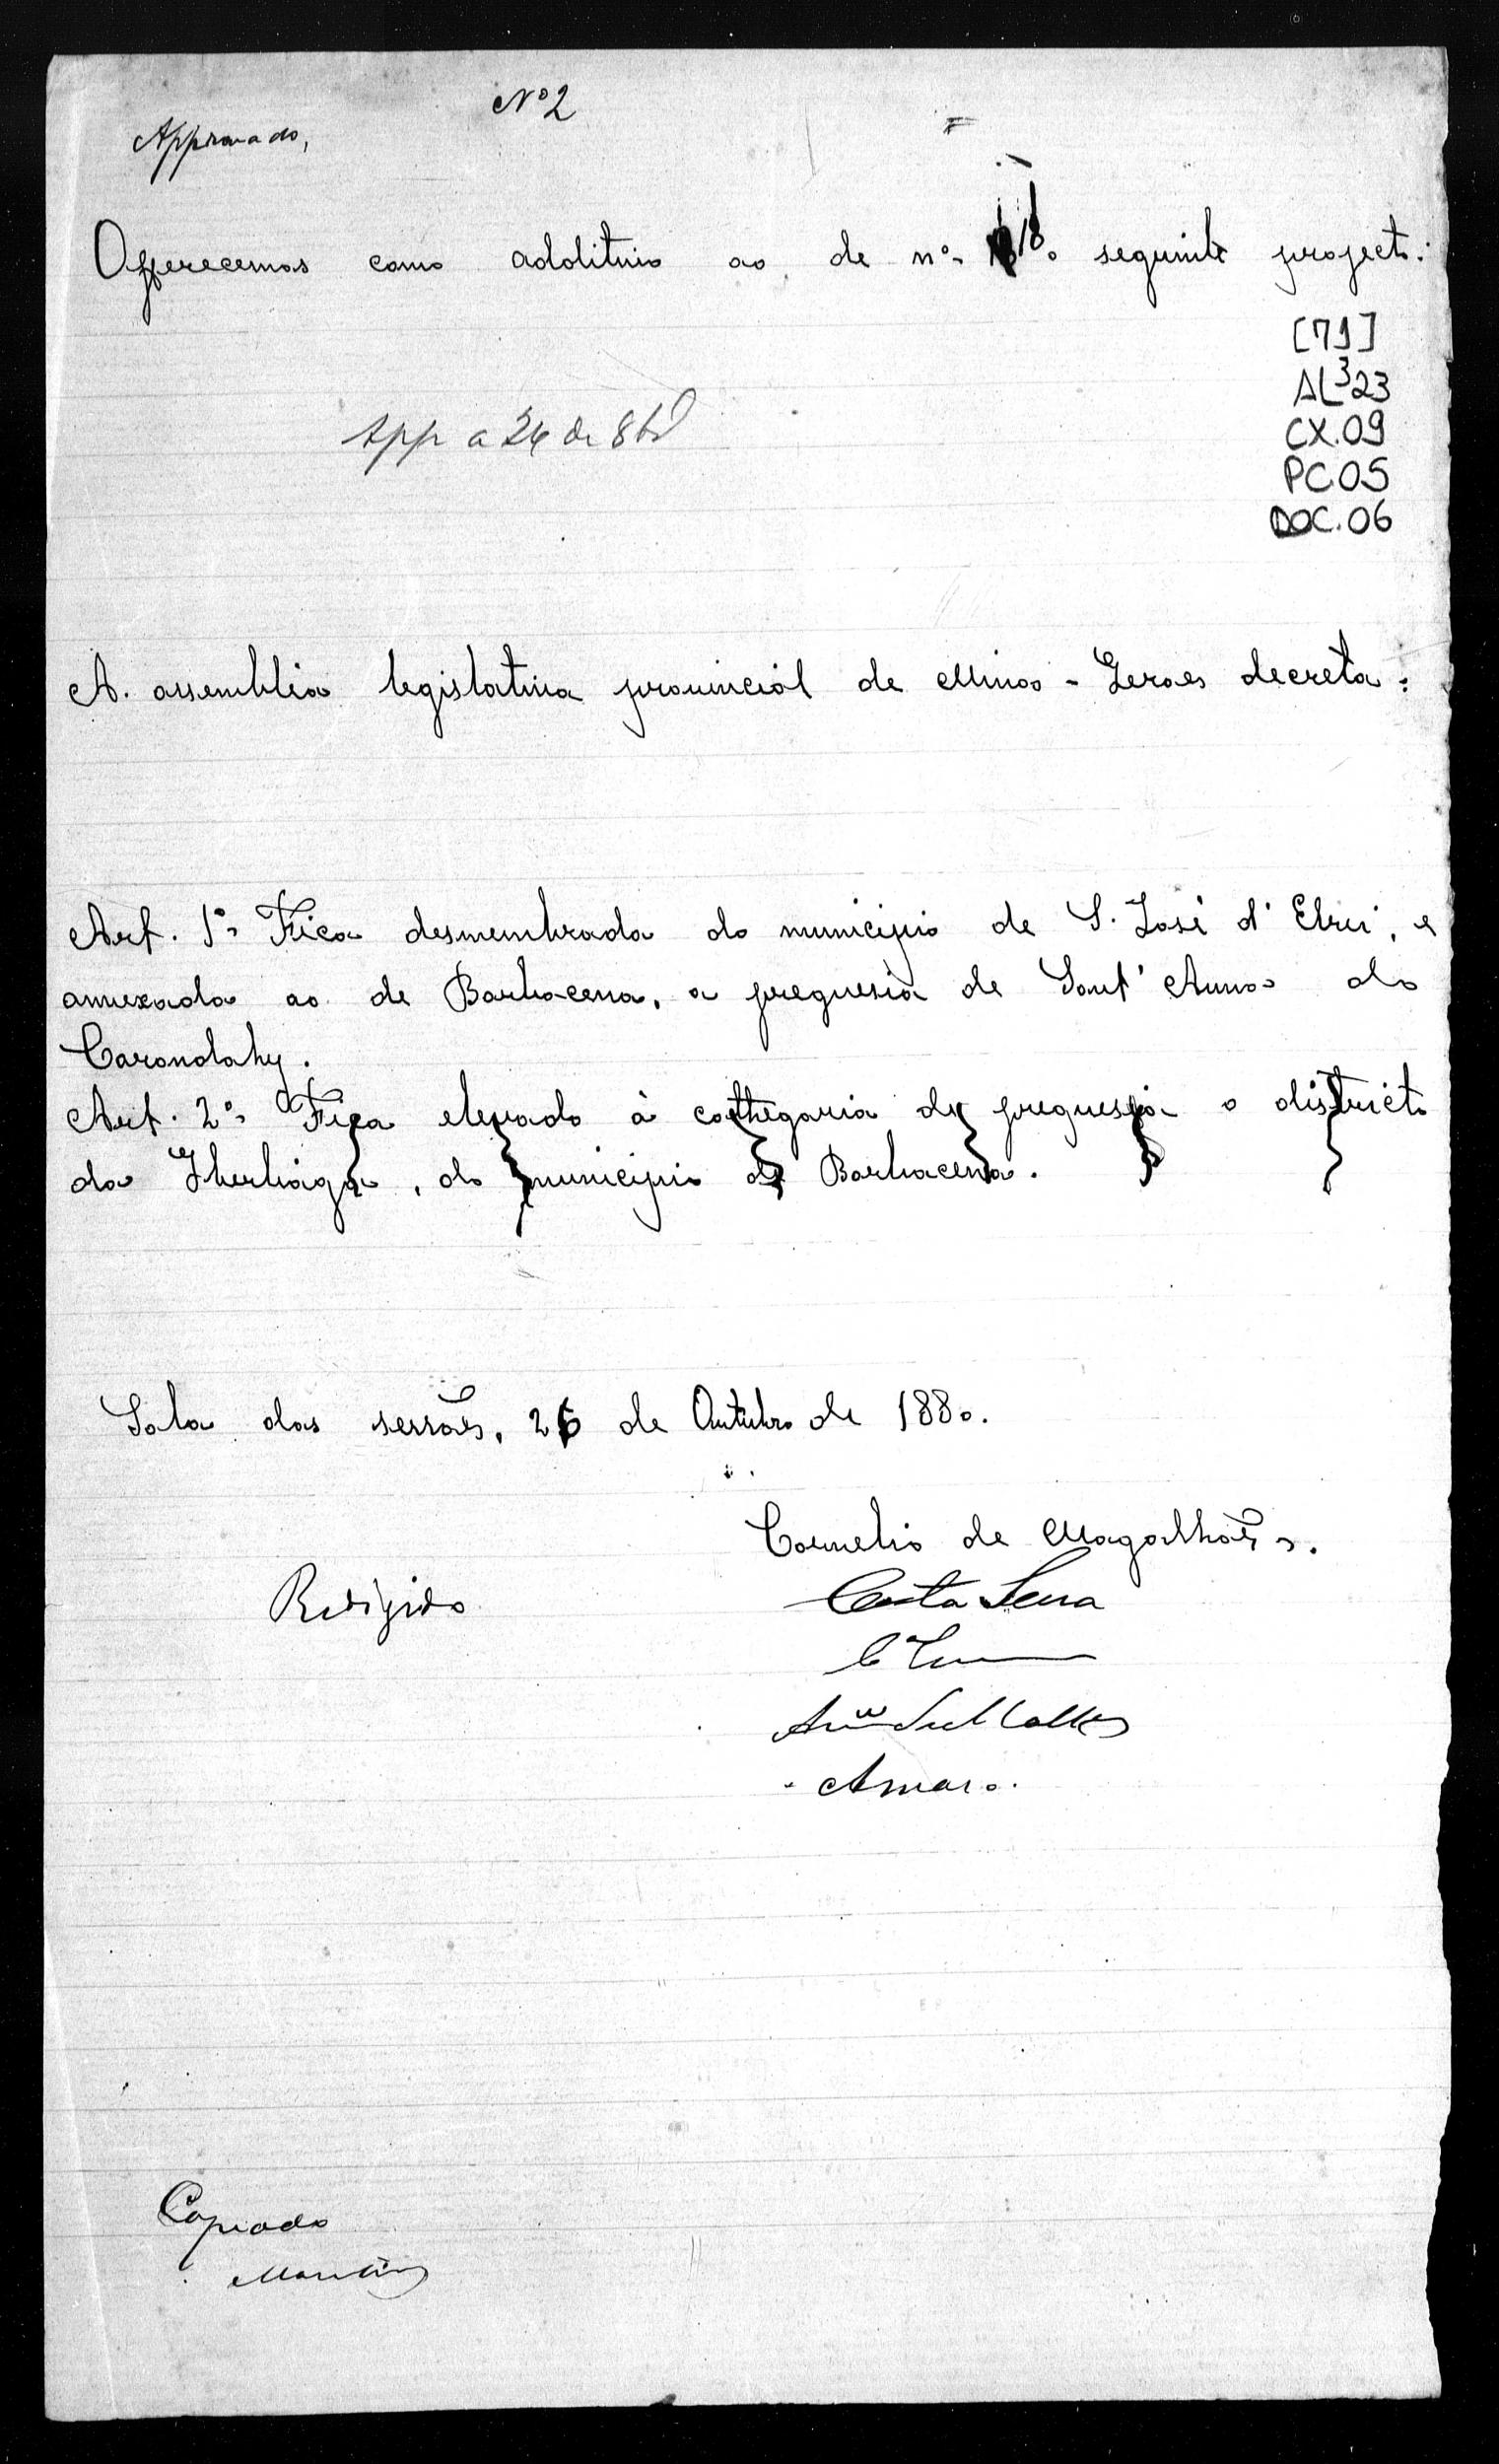 Nº 2
Approvado,
Offerecemos como additivo ao de nº 18 o seguinte projecto:
[71]
AL³23
CX.09
PC.05
DOC.06
App a 26 de 8bro
A assembléa legislativa provincial de Minas-Geraes decreta:
Art. 1º Fica desmembrada do municipio de S. José d'Elrei, e
annexada ao de Barbacena, a freguesia de Sant'Anna do
Carandahy.
Art. 2º Fica elevado à cathegoria de freguesia o districto
da Ibertioga, do municipio de Barbacena.
Sala das sessões, 26 de Outubro de 1880.
Cornelio de Magalhães.
Redigido
Costa Sena
Amaro.
Copiado
Martins